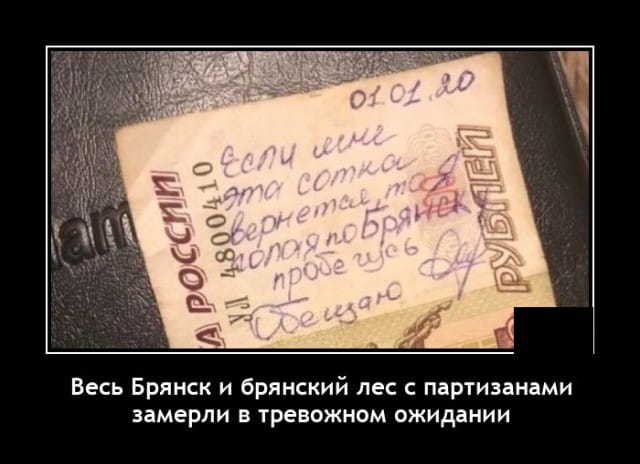 01.01.20
Если мне
эта сотка
вернется, то я
голая по Брянску
пробегусь
Обещаю
РОССИИ
ХП 4800410
100
РУБЛЕЙ
Весь Брянск и брянский лес с партизанами
замерли в тревожном ожидании